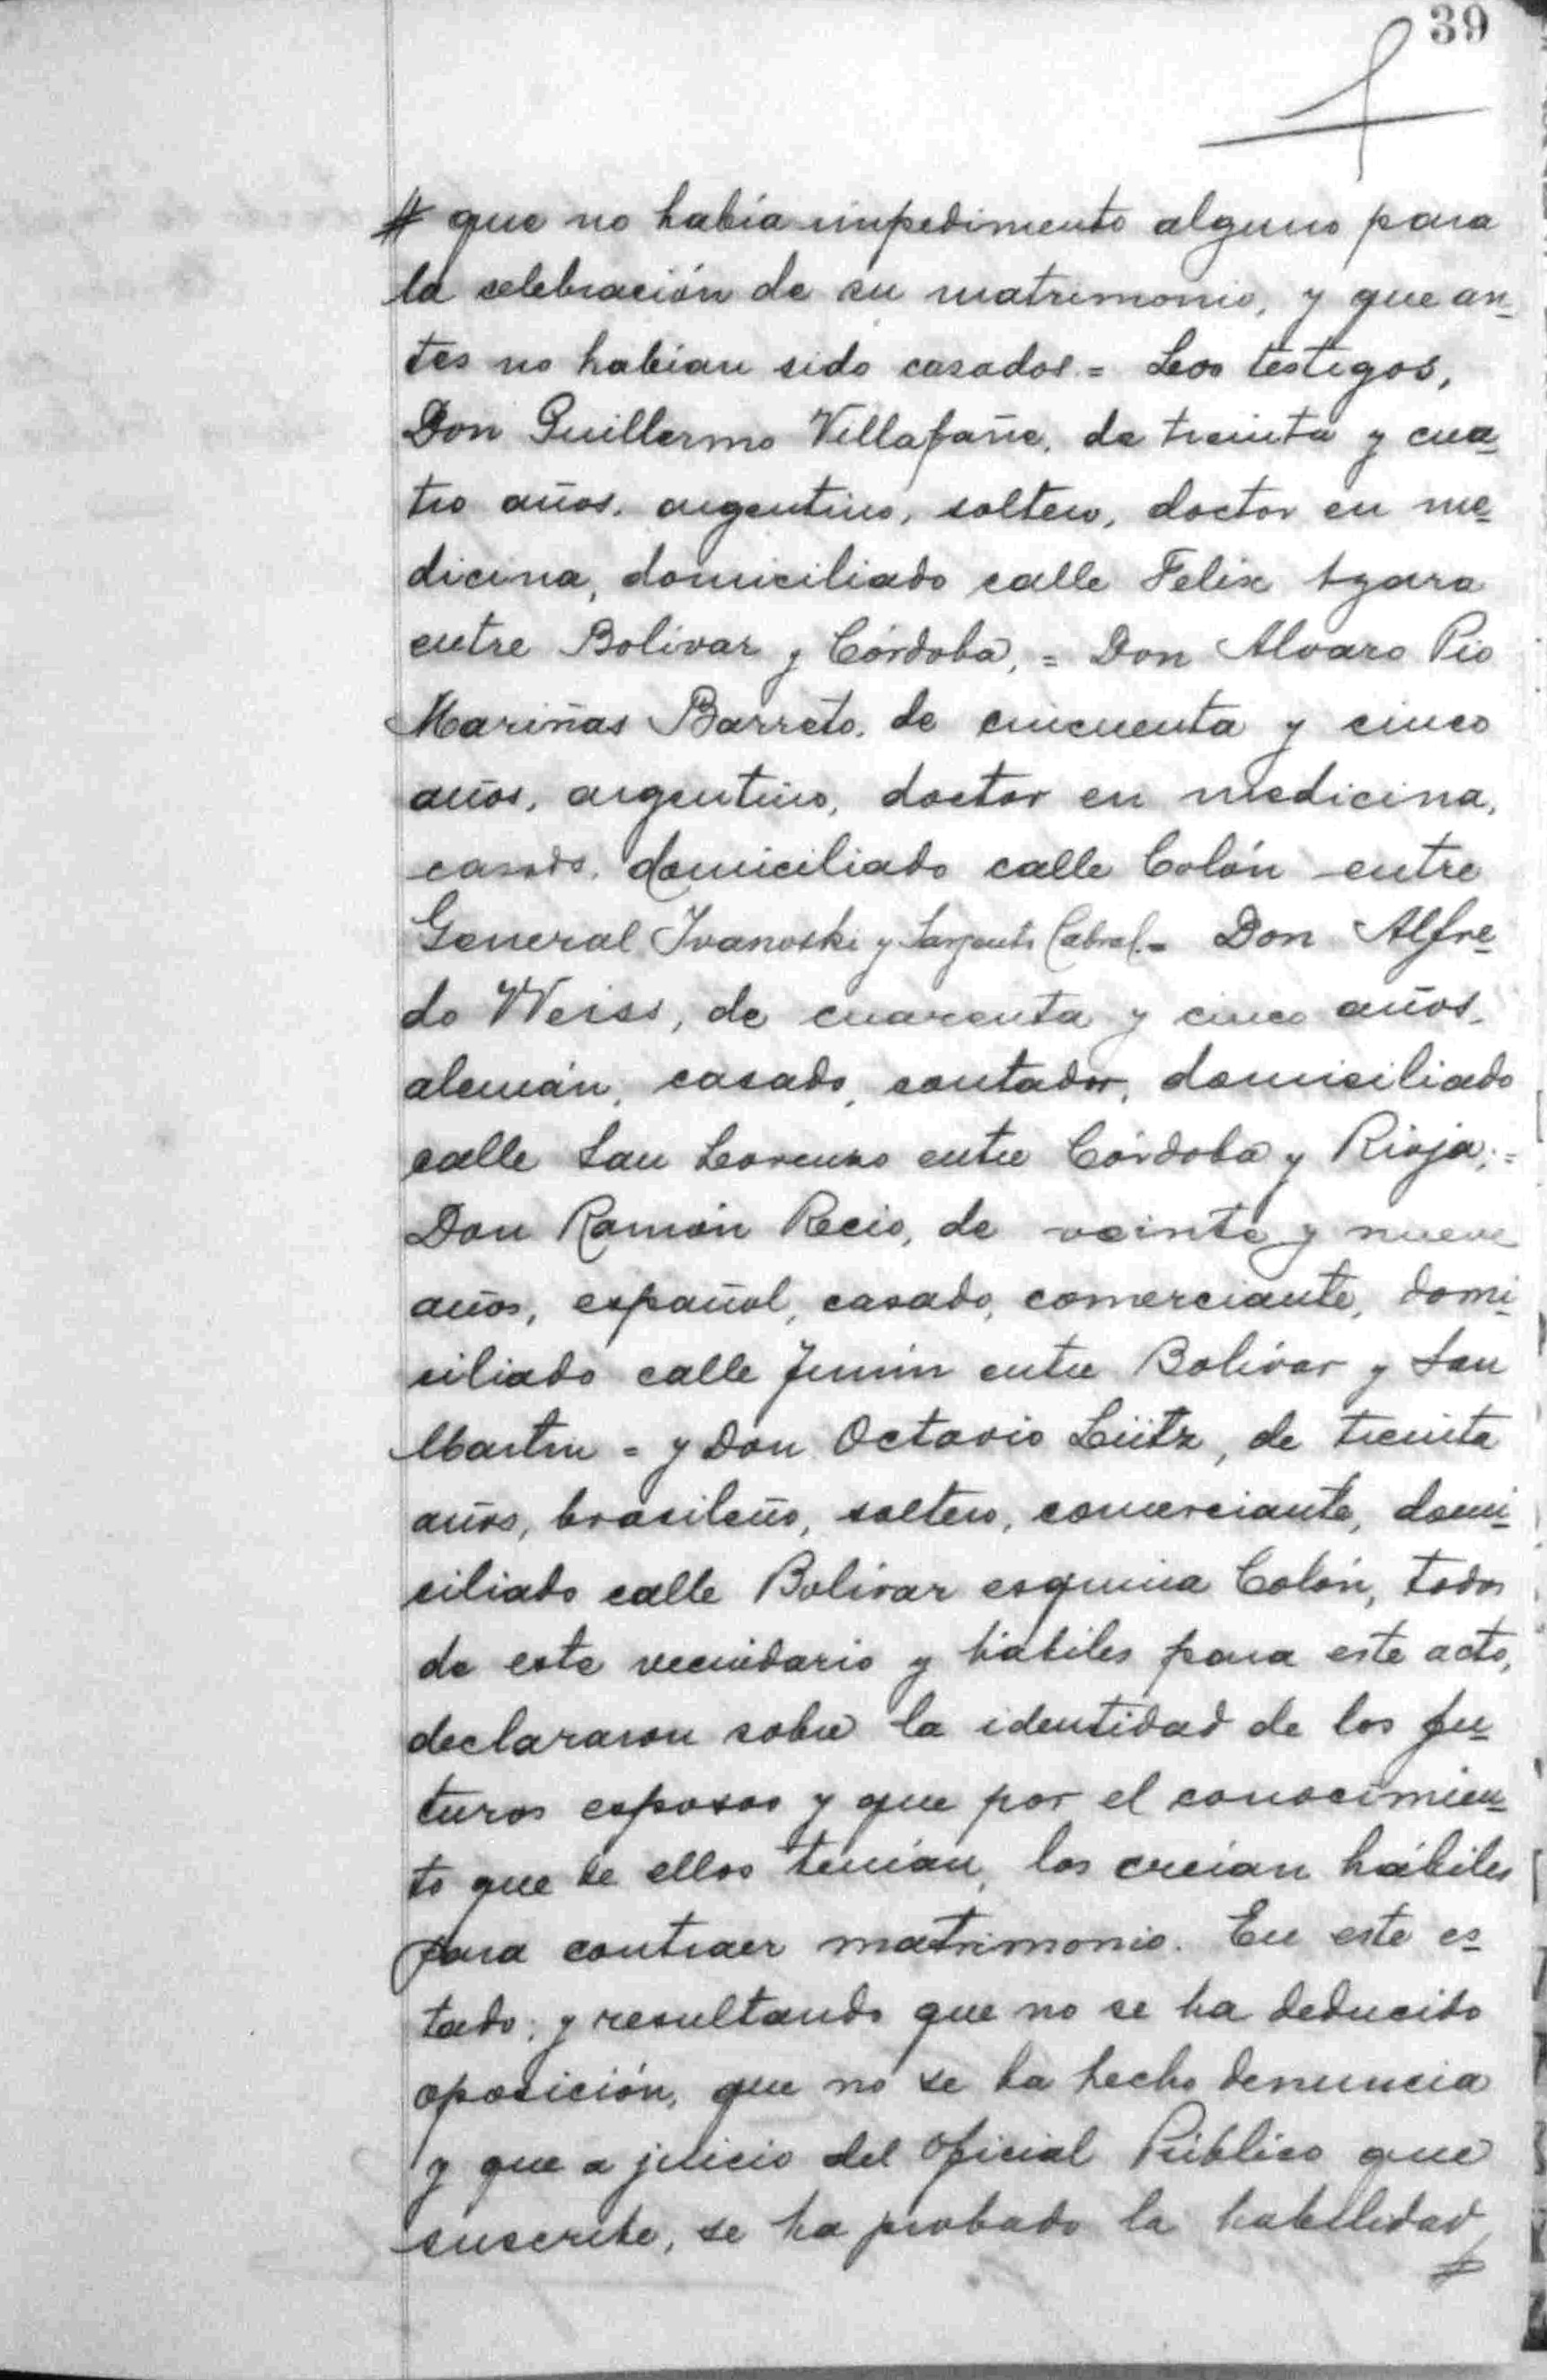 39
# que no había impedimento alguno para
la celebración de su matrimonio, y que an-
tes no habían sido casados.= Los testigos,
Don Guillermo Villafañe, de treinta y cua-
tro años, argentino, soltero, doctor en me-
dicina, domiciliado calle Felix Azara
entre Bolívar y Córdoba, = Don Alvaro Pio
Mariñas Barreto, de cincuenta y cinco
años, argentino, doctor en medicina,
casado, domiciliado calle Colón entre
General Ivanoski y Sargento Cabral.= Don Alfre-
do Weiss, de cuarenta y cinco años,
alemán, casado, contador, domiciliado
calle San Lorenzo entre Córdoba y Rioja;=
Don Ramón Recio, de veinte y nueve
años, español, casado, comerciante, domi-
ciliado calle Junín entre Bolívar y San
Martin = y Don Octavio Lütz, de treinta
años, brasileño, soltero, comerciante, domi-
ciliado calle Bolívar esquina Colón, todos
de este vecindario y hábiles para este acto,
declararon sobre la identidad de los fu-
turos esposos y que por el conocimien-
to que de ellos tenían, los creían hábiles
para contraer matrimonio. En este es-
tado; y resultando que no se ha deducido
oposición, que no se ha hecho denuncia
y que a juicio del Oficial Público que
suscribe, se ha probado la habilidad
#